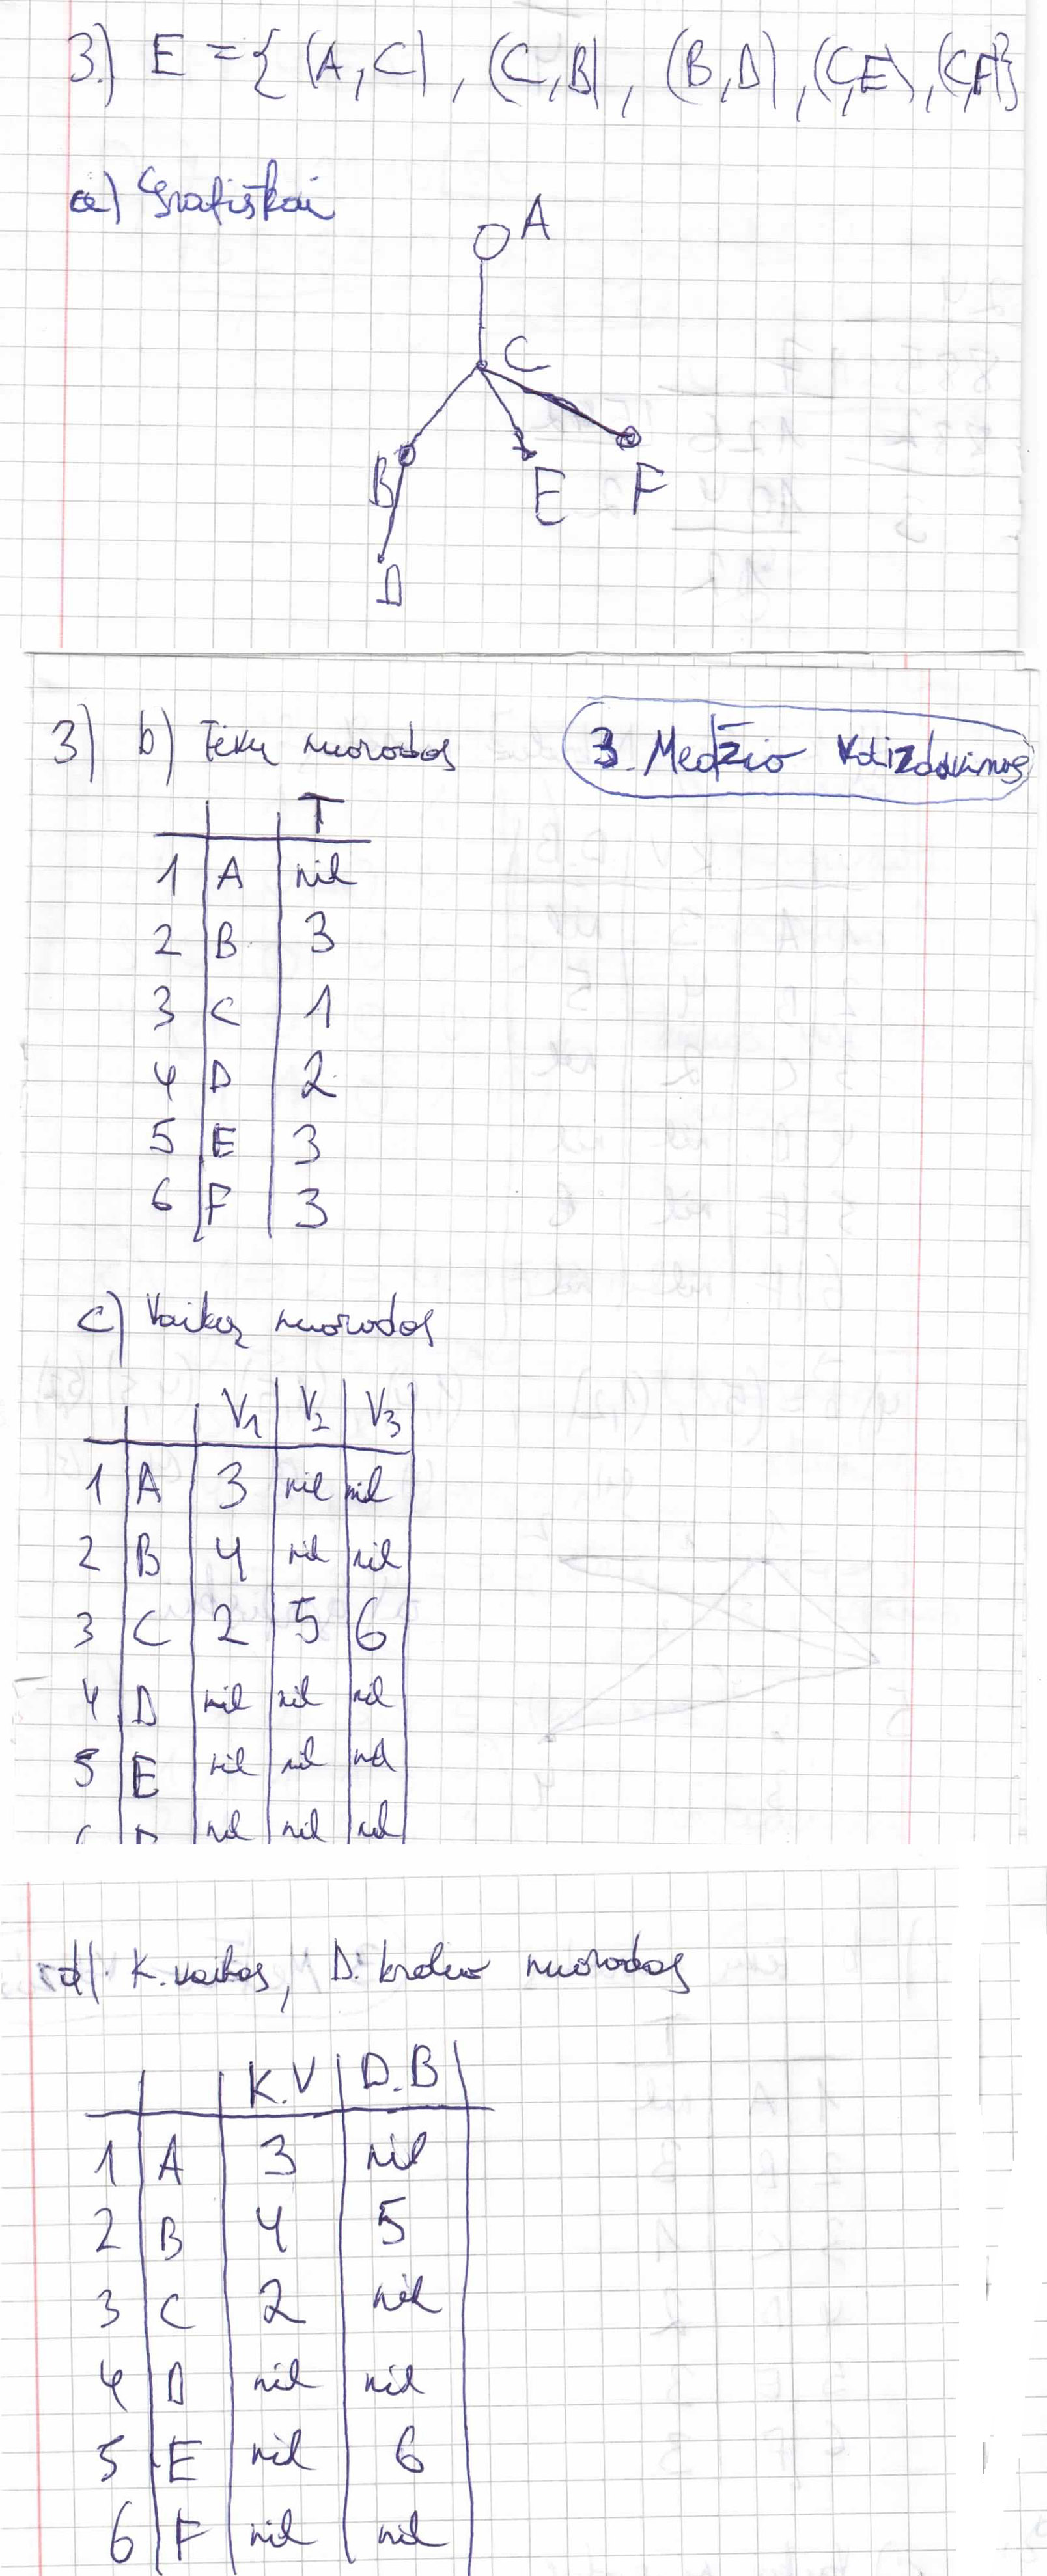 3.) E = { (A,C), (C,B), (B,D), (C,E), (C,F)}
a) Grafiškai
A
C
B
E
F
D
3) b) Tėvų nuorodos
3. Medžio
T
1 A nil
2 B 3
3 C 1
4 D 2
5 E 3
6 F 3
c) Vaikų nuorodos
V1 V2 V3
1 A 3 nil nil
2 B 4 nil nil
3 C 2 5 6
4 D nil nil nil
5 E nil nil nil
nil nil nil
d) K. vaikas, D. brolio nuorodos
K.V D.B
1 A 3 nil
2 B 4 5
3 C 2 nil
4 D nil nil
5 E nil 6
6 F nil nil